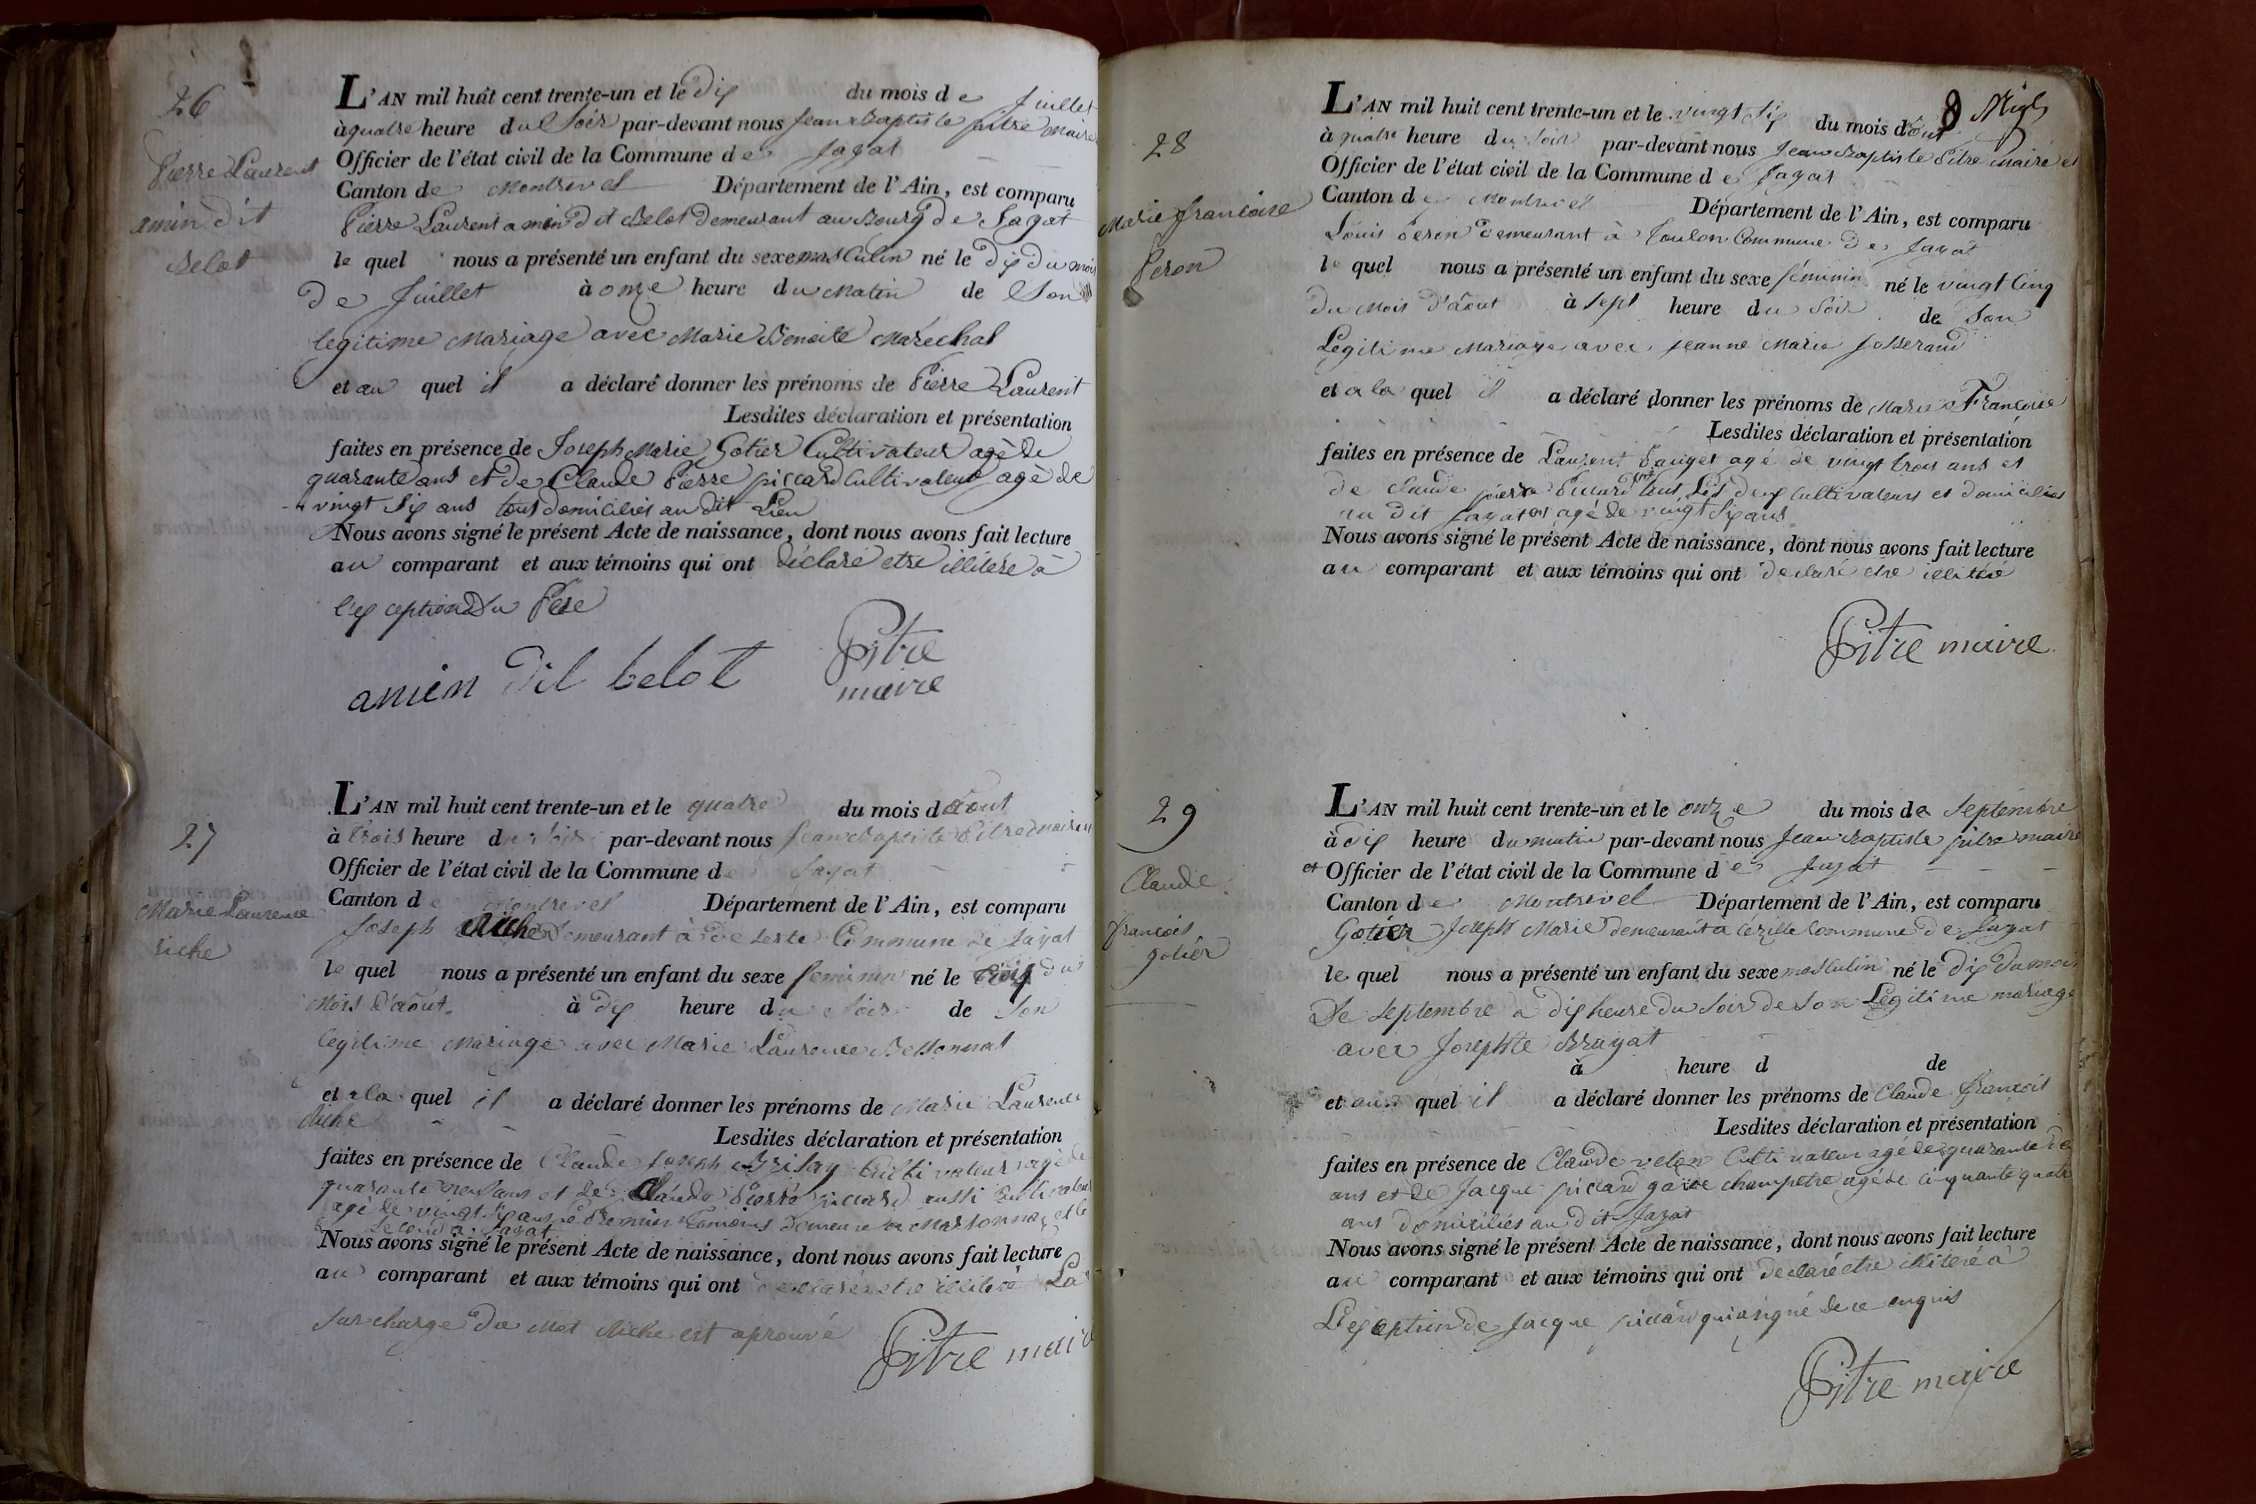 26
Pierre Laurent
amin dit
Belot
L'AN mil huit cent trente-un et le dix du mois de Juillet
à quatre heure du Soir par-devant nous Jean Baptiste pitre Maire
Officier de l'état civil de la Commune de Jayat
Canton de Montrevel Département de l'Ain, est comparu
Pierre Laurent amin dit Belot demeurant au Bourg de Jayat
le quel nous a présenté un enfant du sexe masculin né le dix du mois
de Juillet à onze heure du Matin de Son
legitime Mariage avec Marie Benoite Maréchal
et au quel il a déclaré donner les prénoms de Pierre Laurent
Lesdites déclaration et présentation
faites en présence de Joseph Marie Gotier Cultivateur agé de
quarante ans et de Claude Pierre piccard Cultivateur agé de
vingt Six ans tous domiciliés au dit Lieu
Nous avons signé le présent Acte de naissance, dont nous avons fait lecture
au comparant et aux témoins qui ont déclaré etre illiteré à
l'exception du Pere
amien dit belot
Pitre
maire
27
Marie Laurence
riche
L'AN mil huit cent trente-un et le quatre du mois d'aout
à trois heure du Soir par-devant nous Jean Baptiste Pitre Maire
Officier de l'état civil de la Commune de Jayat
Canton de Montrevel Département de l'Ain, est comparu
Joseph Riche demeurant à Commune de Jayat
le quel nous a présenté un enfant du sexe feminin né le trois du
Mois d'août à dix heure du Soir de Son
legitime Mariage avec Marie Laurence
et a la quel il a déclaré donner les prénoms de Marie Laurence
Riche
Lesdites déclaration et présentation
faites en présence de Claude Joseph Cultivateur agé de
quarante neuf ans et de Claude Pierre piccard aussi Cultivateur
agé de vingt Six ans le Premier temoins demeure a Marsonnas et le
Second a Jayat
Nous avons signé le présent Acte de naissance, dont nous avons fait lecture
au comparant et aux témoins qui ont declaré etre illiteré La
Surcharge du Mot Riche est aprouvé
Pitre maire
8
28
Marie francoise
Peron
L'AN mil huit cent trente-un et le vingt Six du mois d'août
à quatre heure du Soir par-devant nous Jean Baptiste Pitre Maire et
Officier de l'état civil de la Commune de Jayat
Canton de Montrevel Département de l'Ain, est comparu
Louis Peron demeurant à Toulon Commune de Jayat
le quel nous a présenté un enfant du sexe féminin né le vingt Cinq
du Mois d'août à Sept heure du Soir de Son
Legitime Mariage avec Jeanne Marie Josserand
et a la quel il a déclaré donner les prénoms de Marie Françoise
Lesdites déclaration et présentation
faites en présence de Laurent agé de vingt trois ans et
de claude pierre Piccard tous Les deux Cultivateurs et domiciliés
au dit Jayat agé de vingt Six ans
Nous avons signé le présent Acte de naissance, dont nous avons fait lecture
au comparant et aux témoins qui ont declaré etre illiteré
Pitre maire
29
Claude
francois
gotier
L'AN mil huit cent trente-un et le onze du mois de Septembre
à dix heure du matin par-devant nous Jean Baptiste pitre maire
et Officier de l'état civil de la Commune de Jayat
Canton de Montrevel Département de l'Ain, est comparu
Gotier Joseph Marie demeurant a Cézille Commune de Jayat
le quel nous a présenté un enfant du sexe masculin né le dix du mois
de Septembre a dix heure du Soir de Son Légitime mariage
avec Josephte Brayat
à heure d de
et au quel il a déclaré donner les prénoms de Claude François
Lesdites déclaration et présentation
faites en présence de Claude velon Cultivateur agé de quarante
ans et de Jacque piccard garde champetre agé de cinquante quatre
ans domiciliés au dit Jayat
Nous avons signé le présent Acte de naissance, dont nous avons fait lecture
au comparant et aux témoins qui ont declaré etre illiteré à
L'exception de Jacque piccard qui a signé de ce enquis
Pitre maire